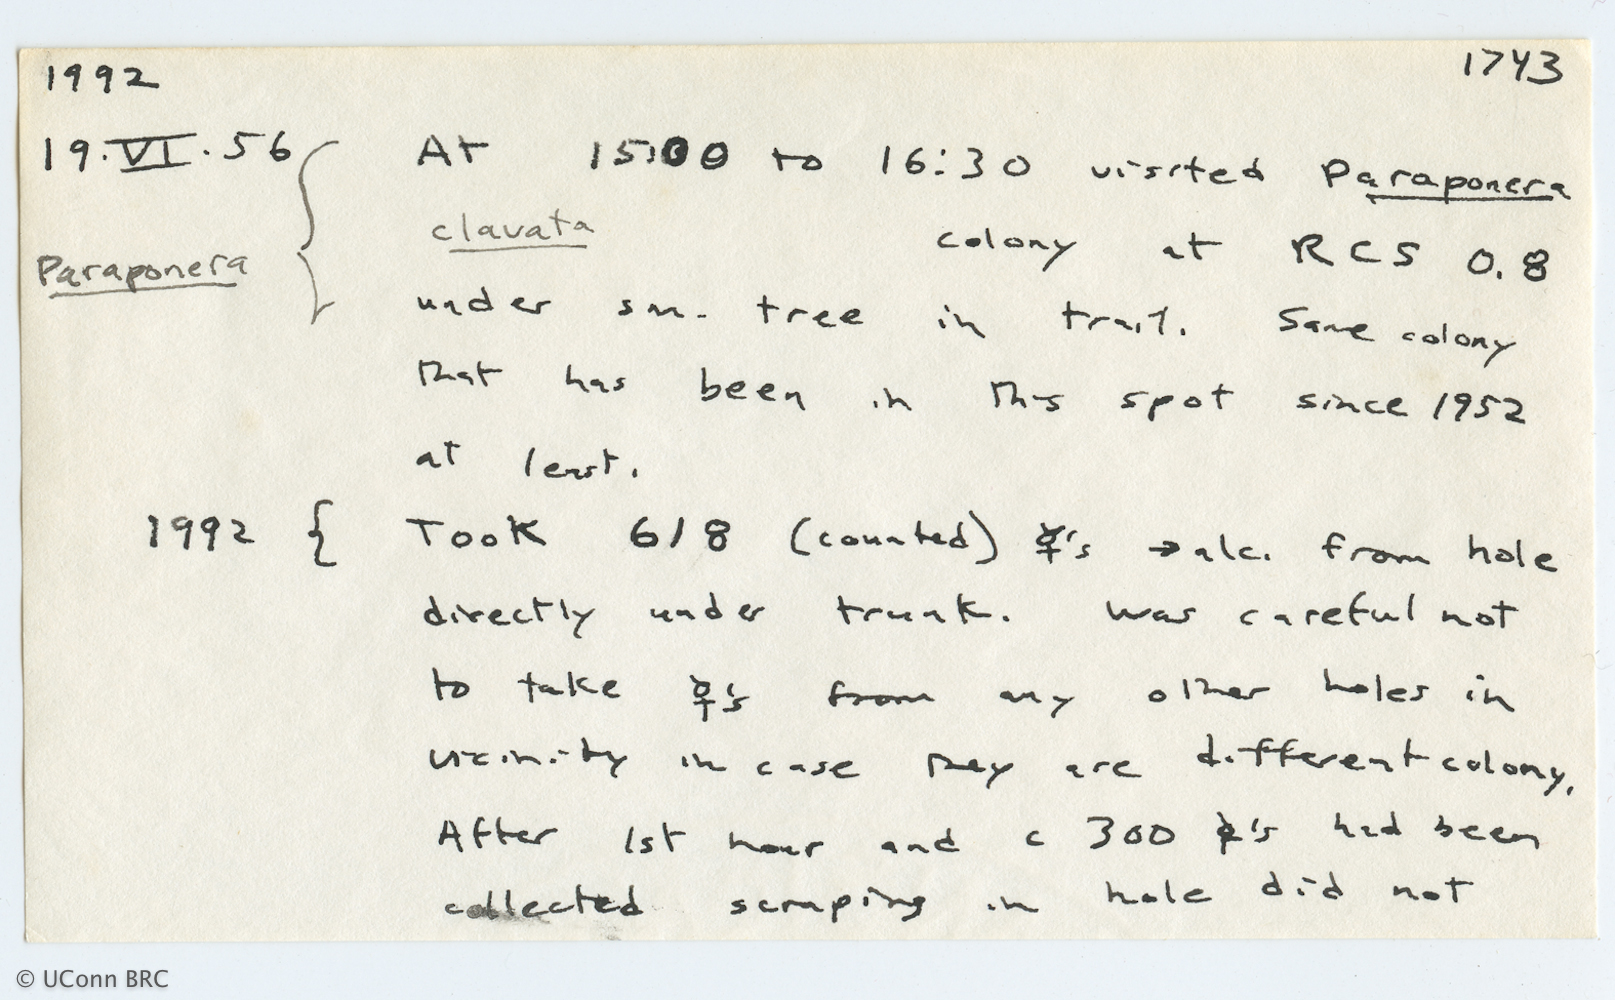 1992 1743
19.VI.56 { At 15:00 to 16:30 visited Paraponera
clavata colony at RCS 0.8
Paraponera
under sm. tree in trail. Same colony
that has been in this spot since 1952
at least.
1992 { Took 618 (counted) ☿'s → alc. from hole
directly under trunk. Was careful not
to take ☿'s from any other holes in
vicinity in case they are different colony.
After 1st hour and c 300 ☿'s had been
collected scraping in hole did not
© UConn BRC